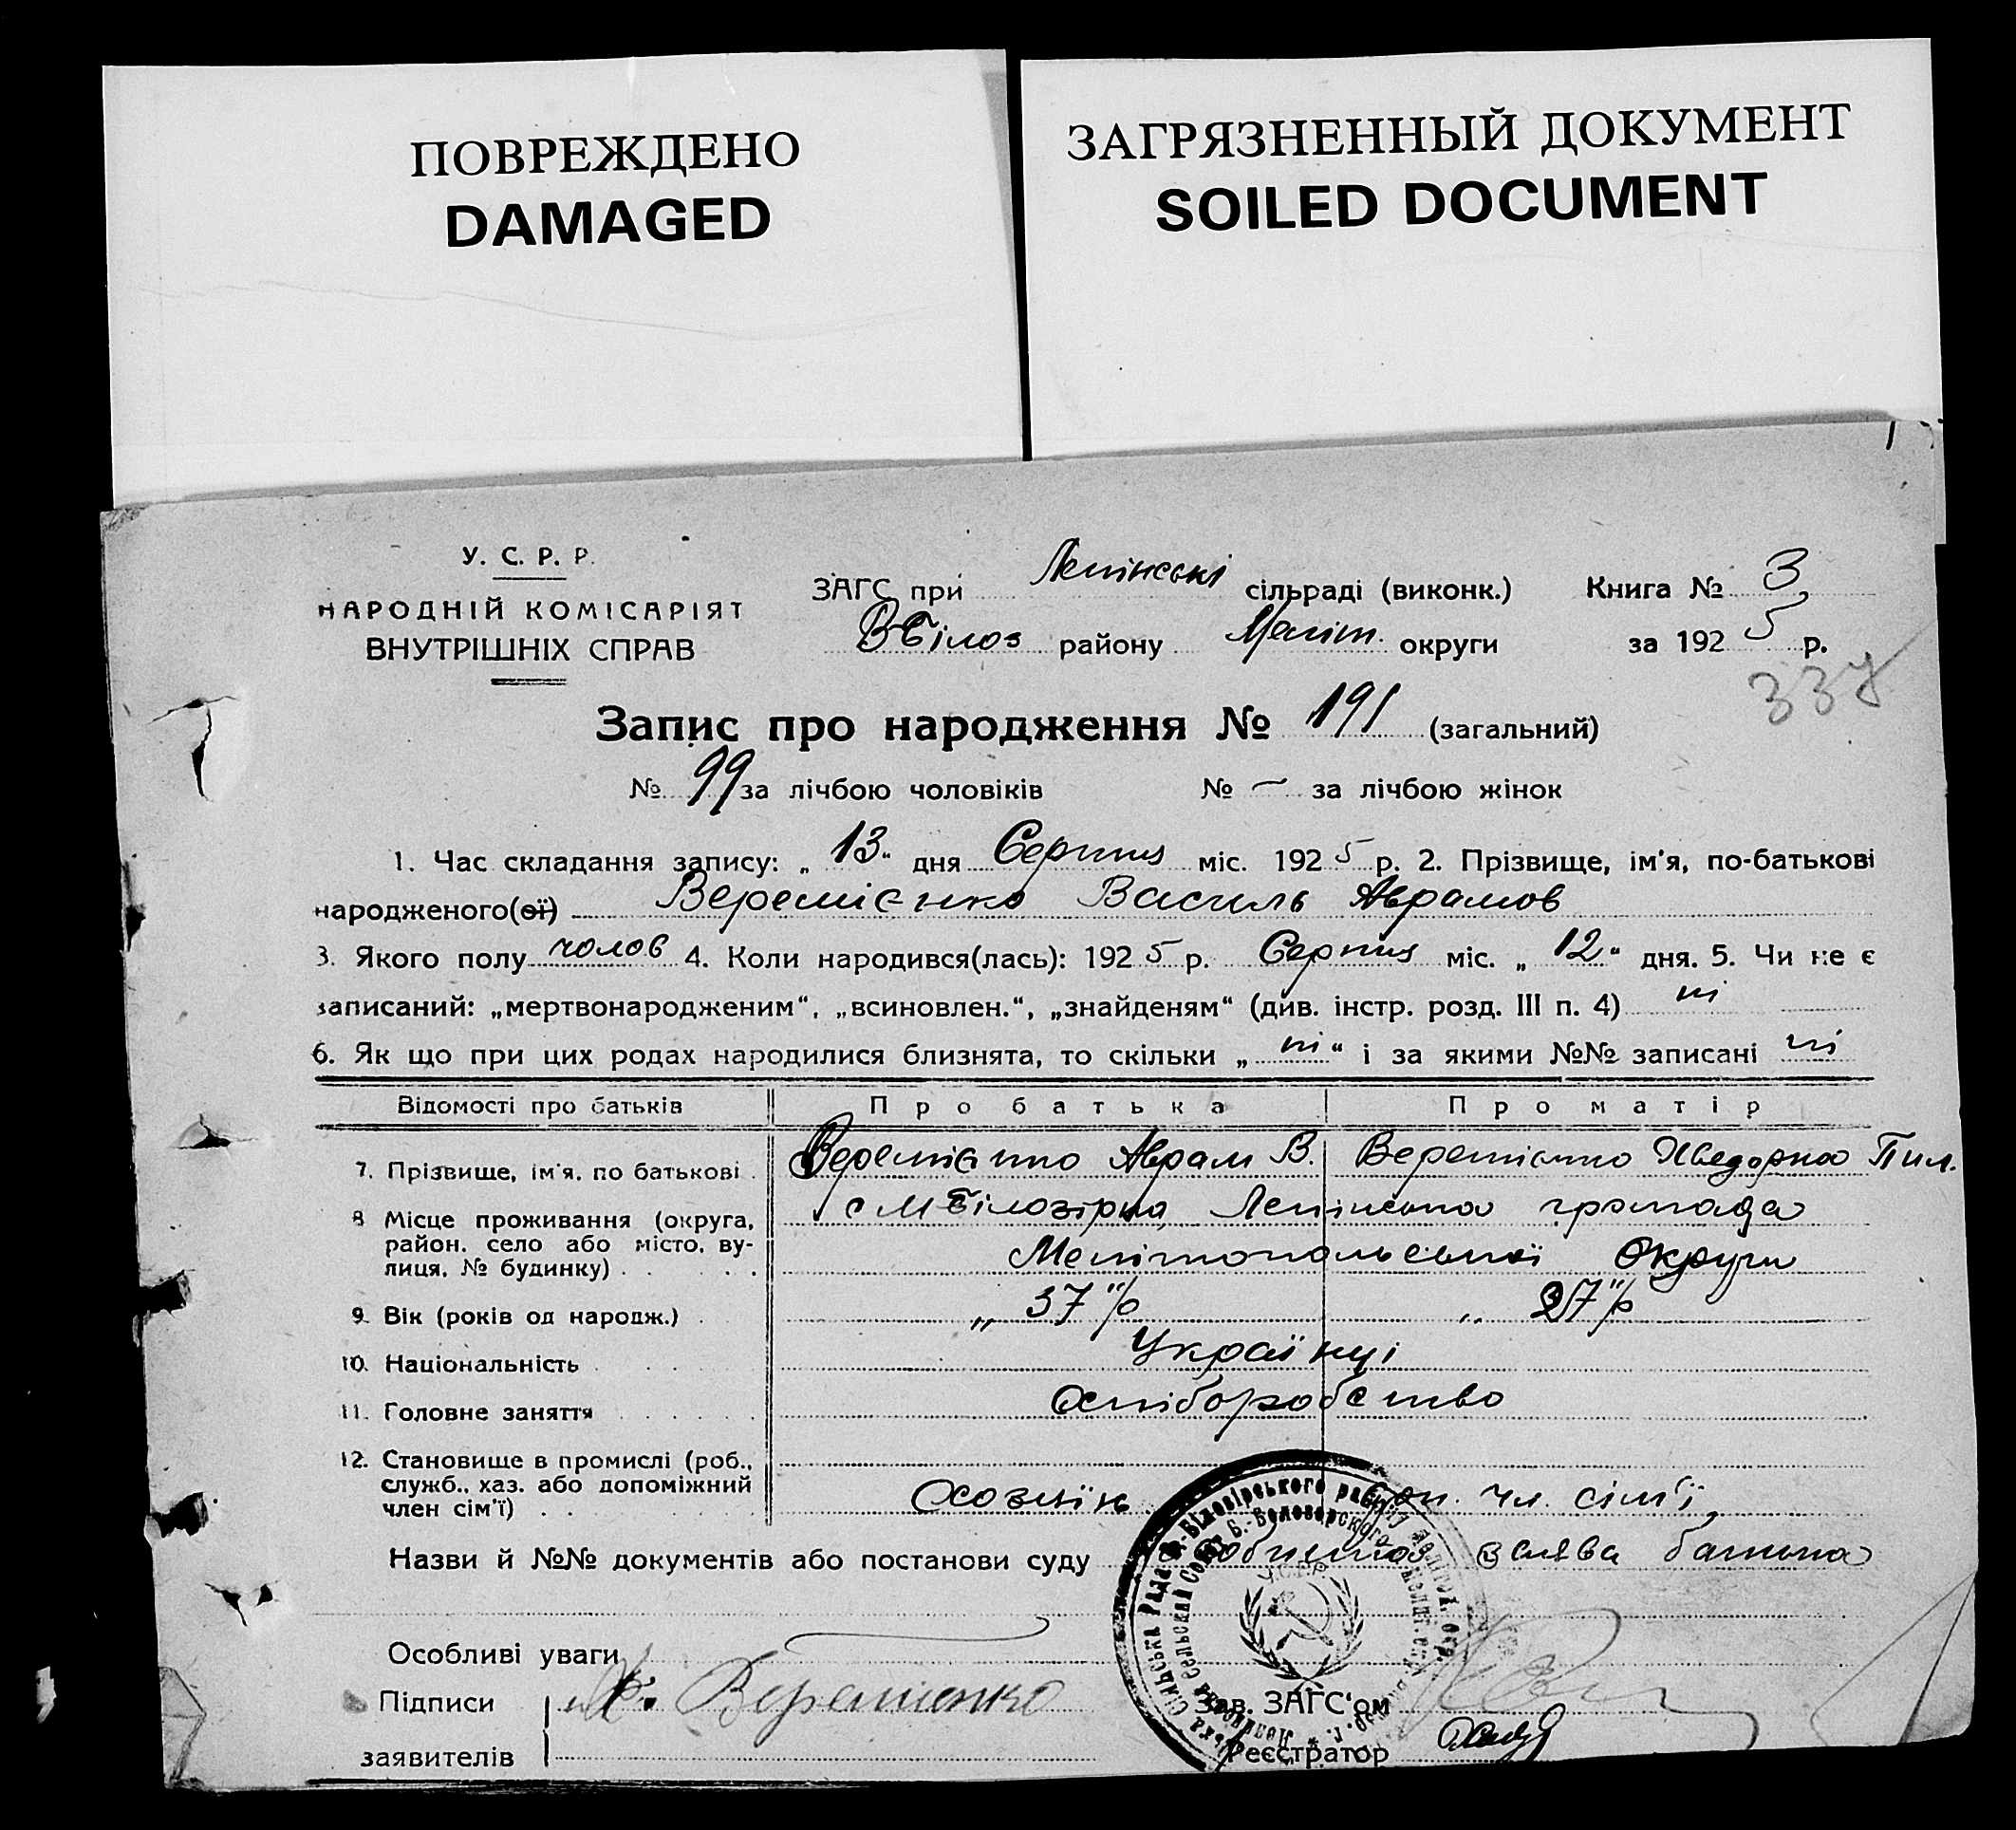 ПОВРЕЖДЕНО
DAMAGED
ЗАГРЯЗНЕННЫЙ ДОКУМЕНТ
SOILED DOCUMENT
У. С. Р. Р.
НАРОДНІЙ КОМІСАРІЯТ
ВНУТРІШНІХ СПРАВ
ЗАГС при Ленінські сільраді (виконк.) Книга № 3
ВБілоз району Меліт. округи за 1925 р.
337
Запис про народження № 191 (загальний)
№ 99 за лічбою чоловіків № — за лічбою жінок
1. Час складання запису: „13“ дня Серпня міс. 1925 р. 2. Прізвище, ім'я, по-батькові
народженого(ої) Веремієнко Василь Аврамов
3. Якого полу чолов 4. Коли народився(лась): 1925 р. Серпня міс. „12“ дня. 5. Чи не є
записаний: „мертвонародженим“, „всиновлен.“, „знайденям“ (див. інстр. розд. III п. 4) ні
6. Як що при цих родах народилися близнята, то скільки „ні“ і за якими №№ записані ні
Відомості про батьків Про батька Про матір
7. Прізвище, ім'я, по батькові . Веремієнко Аврам В. Веремієнко Хведорка Пил.
8 Місце проживання (округа, с МБілозірка Ленінська громада
район, село або місто, ву-
лиця, № будинку) . Мелітопольської Округи
9. Вік (років од народж.) . „37“ р „27“ р
10. Національність Українці
11. Головне заняття Хліборобство
12. Становище в промислі (роб.,
служб., хаз. або допоміжний
член сім'ї) . . Хозяїн доп. чл. сім'ї
Назви й №№ документів або постанови суду заява батька
Особливі уваги
Підписи А. Веремієнко Зав. ЗАГС'ом
заявителів Реєстратор